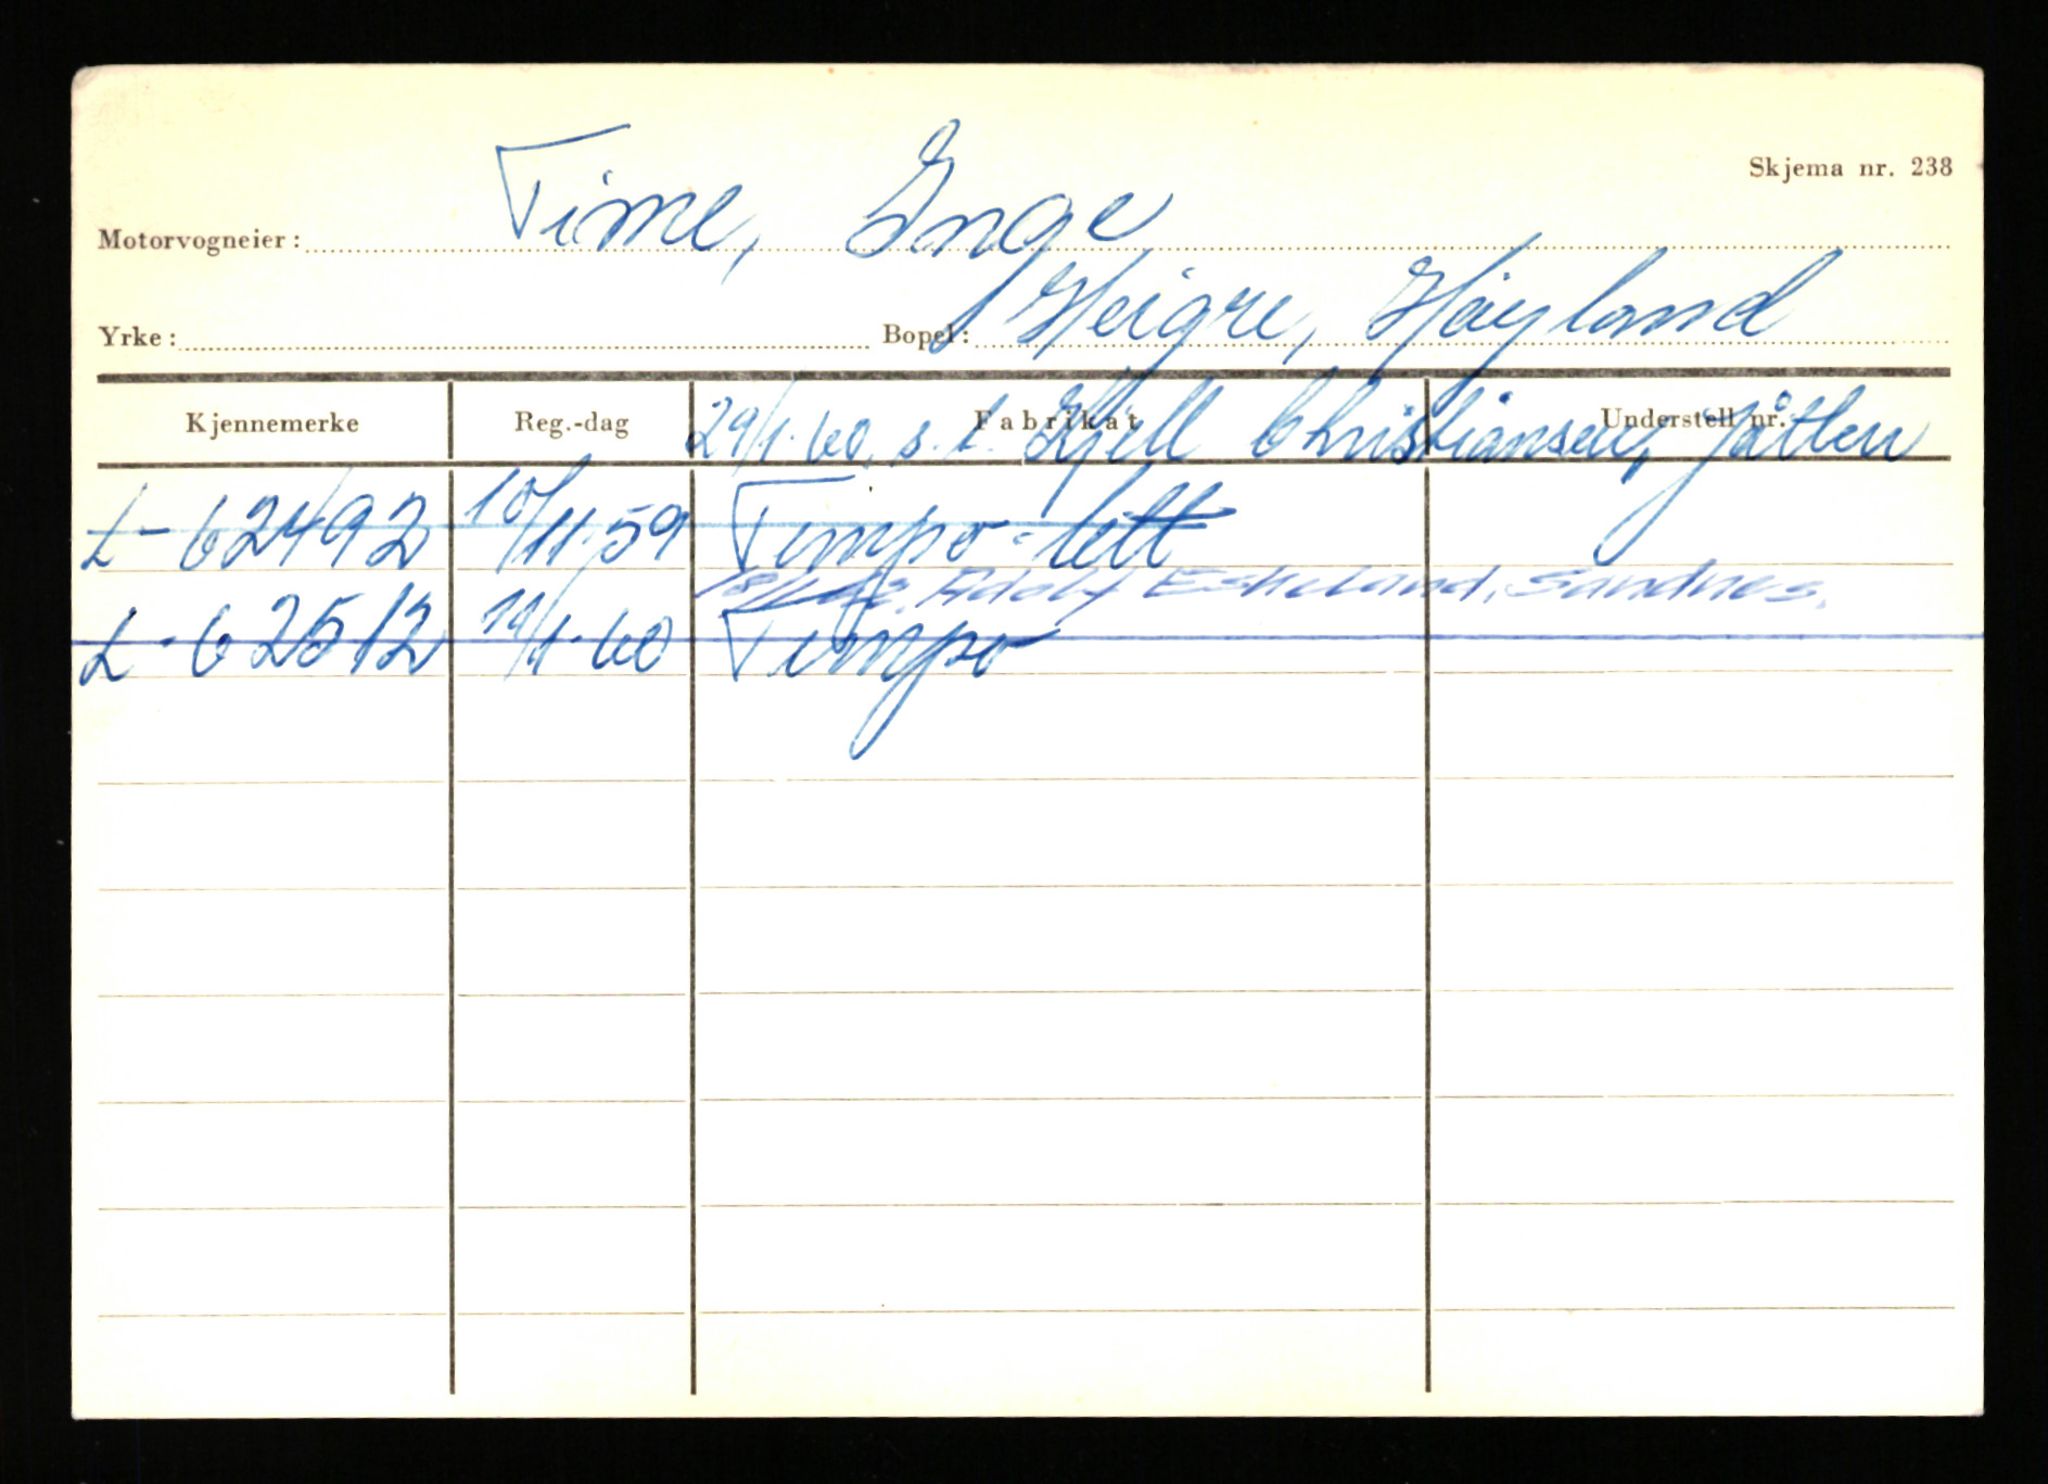 Skjema nr. 238
Motorvogneier: Time, Inge
Yrke: Bopel: Heigre, Høyland
Kjennemerke Reg.-dag Fabrikat Understell nr.
29/1.60. s.t. Kjell Christiansen, Jåtten
L-62492 10/11.59 Tempo-lett
Adolf Eskeland, Sandnes.
L-62512 14/1.60 Tempo